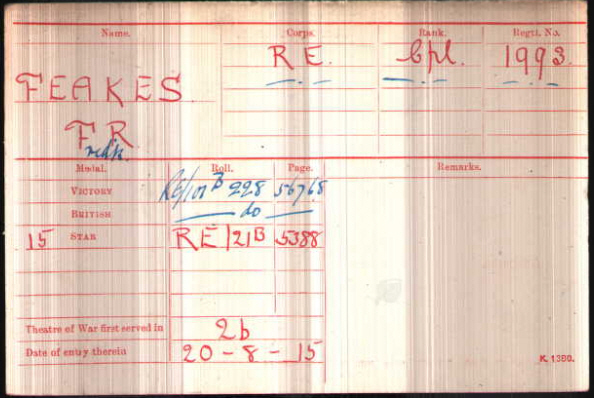 Name. Corps. Rank. Regtl. No.
R E. Cpl. 1993
FEAKES
F R
redk.
Medal. Roll. Page. Remarks.
VICTORY RE/101 B 228 56768
BRITISH do
15 STAR RE/21B 5388
Theatre of War first served in 2b
Date of entry therein 20-8-15
K. 1380.